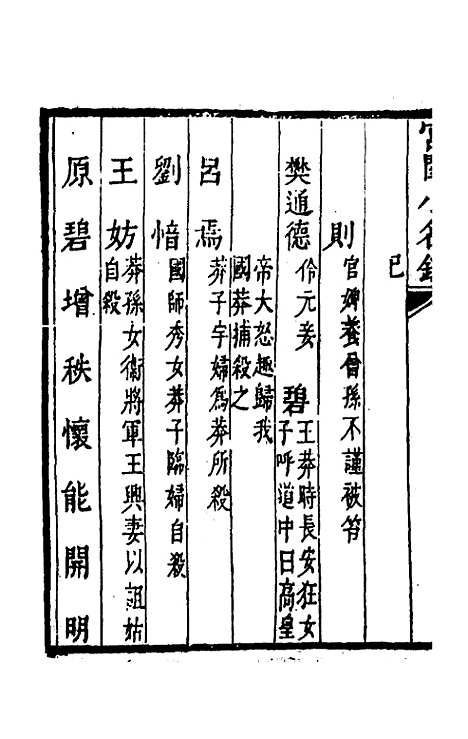 宮閨小名錄
已
則　官婢養曾孫不謹被笞
樊通德　伶元妾　碧　王莽時長安狂女
子呼道中曰高皇
帝大怒趣歸我
國莽捕殺之
呂焉　莽子宇婦爲莽所殺
劉愔　國師秀女莽子臨婦自殺
王妨　莽孫女衞將軍王興妻以詛姑
自殺
原碧增秩懷能開明